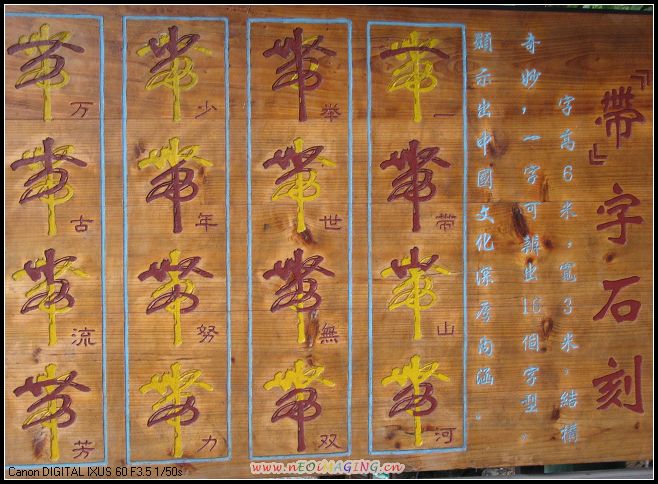 『帶』字石刻
字高6米，寬3米。結構
奇妙，一字可辨出16個字型。
顯示出中國文化深厚内涵。
一帶山河
举世無双
少年努力
万古流芳
Canon DIGITAL IXUS 60 F3.5 1/50s
www.nEOiMAGiNG.cn